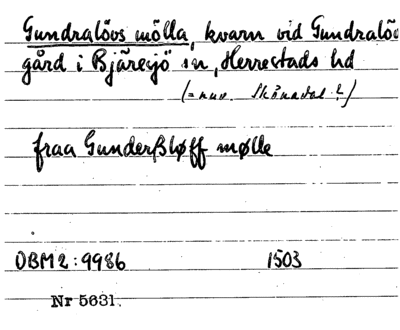 Gundralövs mölla, kvarn vid Gundralövs
gård i Bjäresjö sn, Herrestads hd
(= nuv. Skönadal?)
fraa Gunderßløff mølle
OBM 2: 9986 1503
Nr 5631.